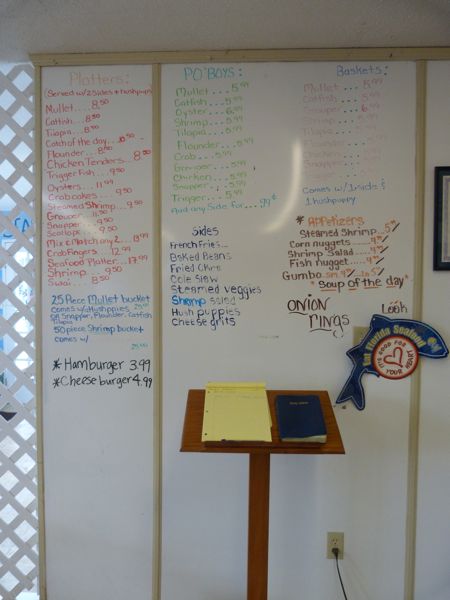 Platters:
(Served w/2 sides + hushpuppy
Mullet.... 8.50
Catfish... 8.50
Tilapia... 8.50
Catch of the day... 10.50
Flounder... 8.50
Chicken Tenders... 8.50
Trigger Fish... 9.50
Oysters... 11.99
Crabcakes... 9.50
Steamed Shrimp... 9.50
Grouper... 11.50
Snapper... 9.50
Scallops... 9.50
Mix & Match any 2... 13.99
Crab Fingers... 12.99
Seafood Platter... 17.99
Shrimp... 9.50
Swai... 8.50
25 Piece Mullet bucket
comes w/Hushpuppies
OR Snapper, Flounder, Catfish
Tilapia
50 piece Shrimp bucket
comes w/
*Hamburger 3.99
*Cheeseburger 4.99
PO'BOYS:
Mullet... 5.99
Catfish... 5.99
Oyster... 6.99
Shrimp... 5.99
Tilapia... 5.99
Flounder... 5.99
Crab... 5.99
Grouper... 5.99
Chicken... 5.99
Snapper... 5.99
Trigger... 5.99
Add any Side for... .99¢
Sides
French Fries...
Baked Beans
Fried Okra
Cole Slaw
Steamed veggies
Shrimp salad
Hush puppies
Cheese grits
Baskets:
Mullet...
Catfish
Grouper
Shrimp
Tilapia
Flounder
Chicken
Snapper
Comes w/ 1 side &
1 hushpuppy
* Appetizers
Steamed Shrimp...
Corn nuggets
Shrimp Salad
Fish Nugget
Gumbo sm. 4.25 Lg
"soup of the day"
ONION
RINGS
Look
Eat Florida Seafood
IT'S GOOD FOR
YOUR HEART